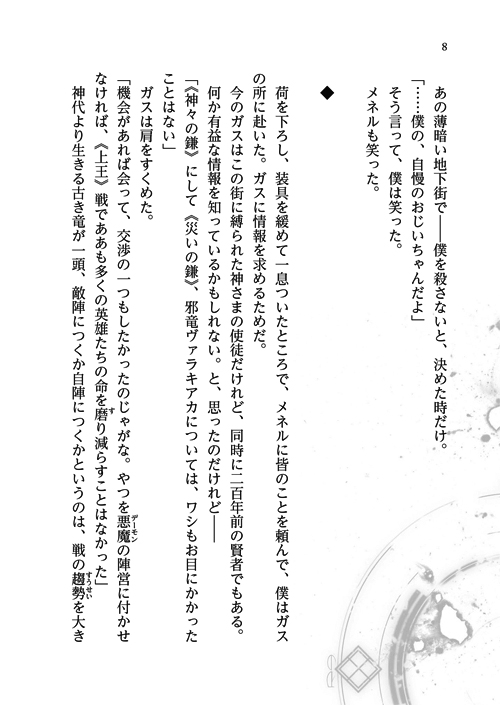 8
あの薄暗い地下街で――僕を殺さないと、決めた時だけ。
「……僕の、自慢のおじいちゃんだよ」
そう言って、僕は笑った。
メネルも笑った。
◆
荷を下ろし、装具を緩めて一息ついたところで、メネルに皆のことを頼んで、僕はガス
の所に赴いた。ガスに情報を求めるためだ。
今のガスはこの街に縛られた神さまの使徒だけれど、同時に二百年前の賢者でもある。
何か有益な情報を知っているかもしれない。と、思ったのだけれど――
「《神々の鎌》にして《災いの鎌》、邪竜ヴァラキアカについては、ワシもお目にかかった
ことはない」
ガスは肩をすくめた。
「機会があれば会って、交渉の一つもしたかったのじゃがな。やつを悪魔の陣営に付かせ
デーモン
なければ、《上王》戦でああも多くの英雄たちの命を磨り減らすことはなかった」
す
神代より生きる古き竜が一頭、敵陣につくか自陣につくかというのは、戦の趨勢を大き
すうせい